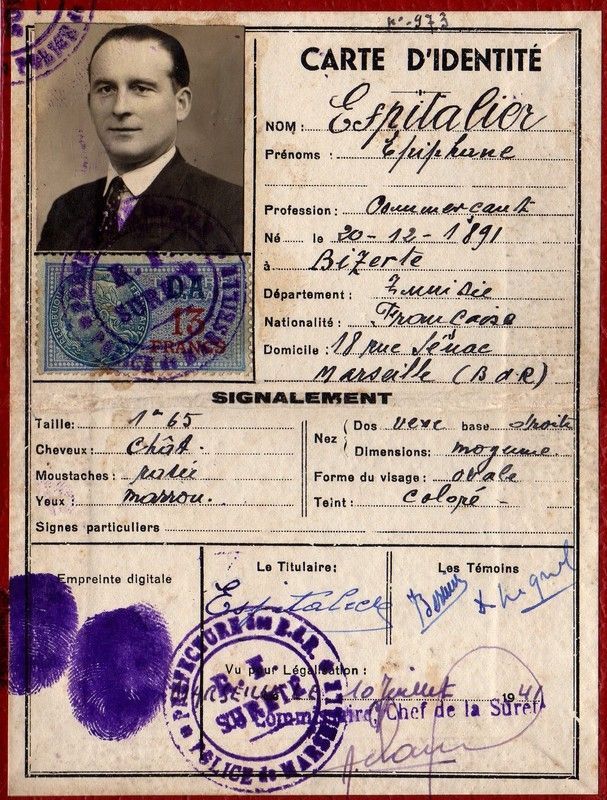 n° 973
CARTE D'IDENTITÉ
NOM : Espitalier
Prénoms : Epiphane
Profession : Commerçant
Né le 20-12-1891
à Bizerte
Département : Tunisie
Nationalité : Française
Domicile : 18 rue Sénac
Marseille (B d R)
13
FRANCS
SIGNALEMENT
Taille : 1m 65
Cheveux : chât.
Moustaches : rasée
Yeux : marron.
Signes particuliers
Nez { Dos vexe base droite
Dimensions: moyenne
Forme du visage : ovale
Teint : coloré
Empreinte digitale
Le Titulaire:
Les Témoins
Espitalier
PREFECTURE des B.d.R.
SURETÉ
POLICE de MARSEILLE
Vu pour Légalisation :
MARSEILLE LE 10 Juillet 1941
Commissaire Chef de la Sureté